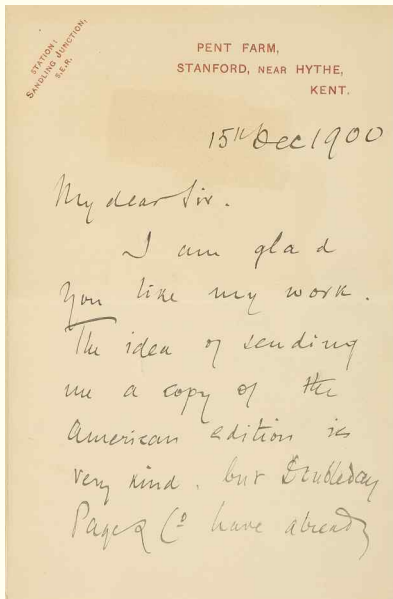 STATION:
SANDLING JUNCTION,
S.E.R.
PENT FARM,
STANFORD, NEAR HYTHE,
KENT.
15th Dec 1900
My dear Sir.
I am glad
you like my work.
The idea of sending
me a copy of the
American edition is
very kind. but Doubleday
Page & Co have already